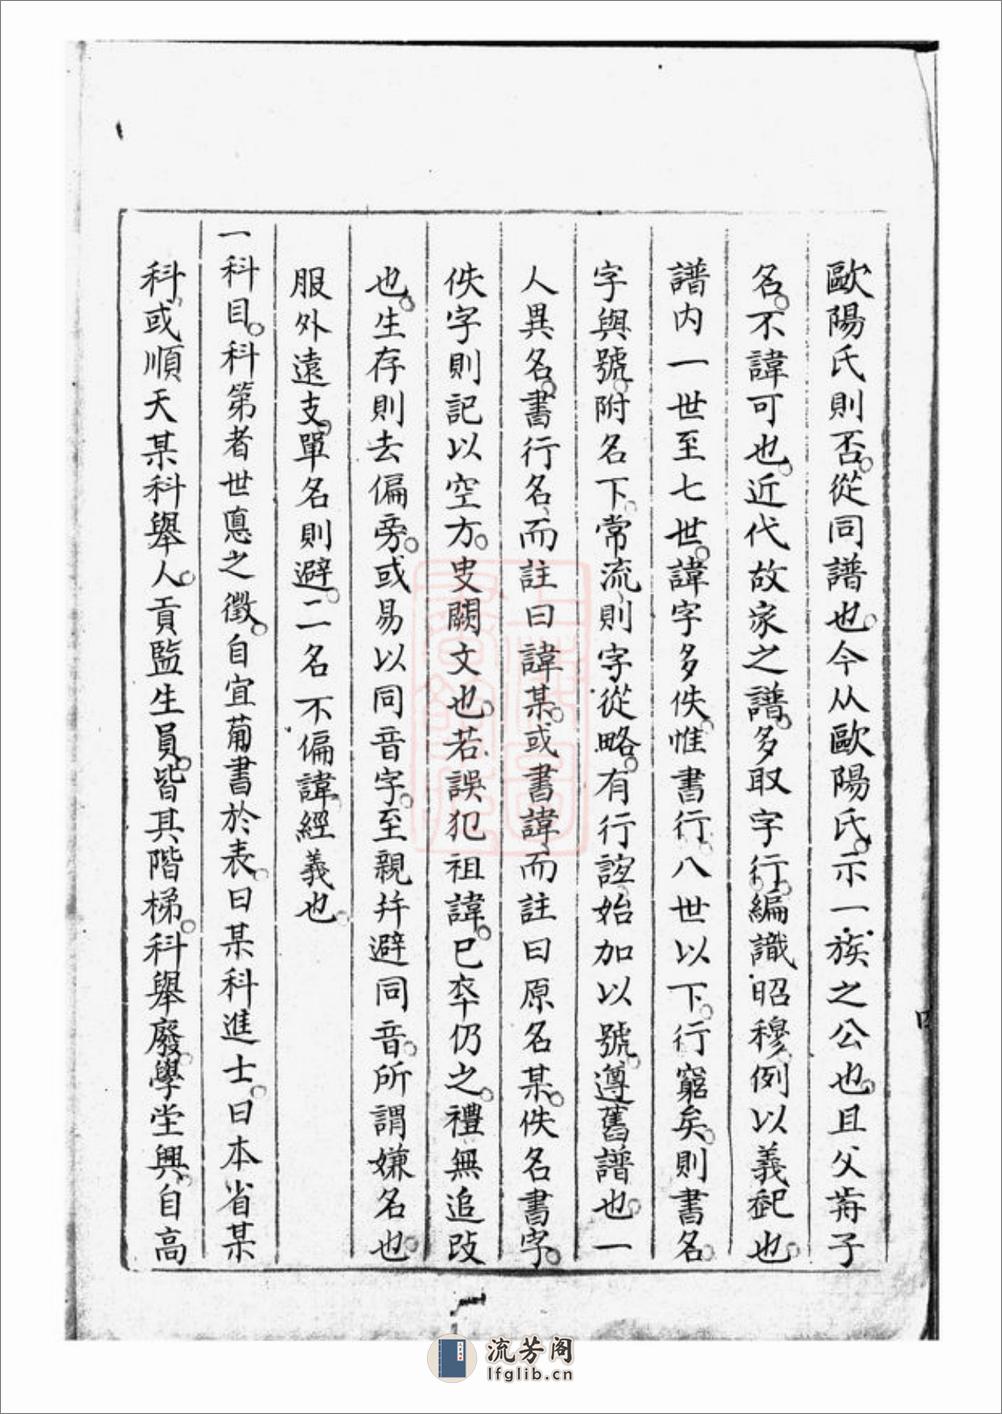 歐陽氏則否。從同譜也。今从歐陽氏。示一族之公也。且父前子
名。不諱可也。近代故家之譜。多取字行。編識昭穆。例以義起也。
譜内一世至七世。諱字多佚。惟書行。八世以下。行窮矣。則書名。
字與號。附名下。常流。則字從略。有行誼。始加以號。遵舊譜也。一
人異名。書行名。而註曰諱某。或書諱。而註曰原名某。佚名書字。
佚字則記以空方。史闕文也。若誤犯祖諱。已卒仍之。禮無追改
也。生存則去偏旁。或易以同音字。至親并避同音。所謂嫌名也。
服外遠支。單名則避。二名不偏諱。經義也。
一科目。科第者世德之徵。自宜葡書於表。曰某科進士。曰本省某
科。或順天某科舉人。貢監生員。皆其階梯。科舉廢。學堂興。自高
四
流芳阁
lfglib.cn